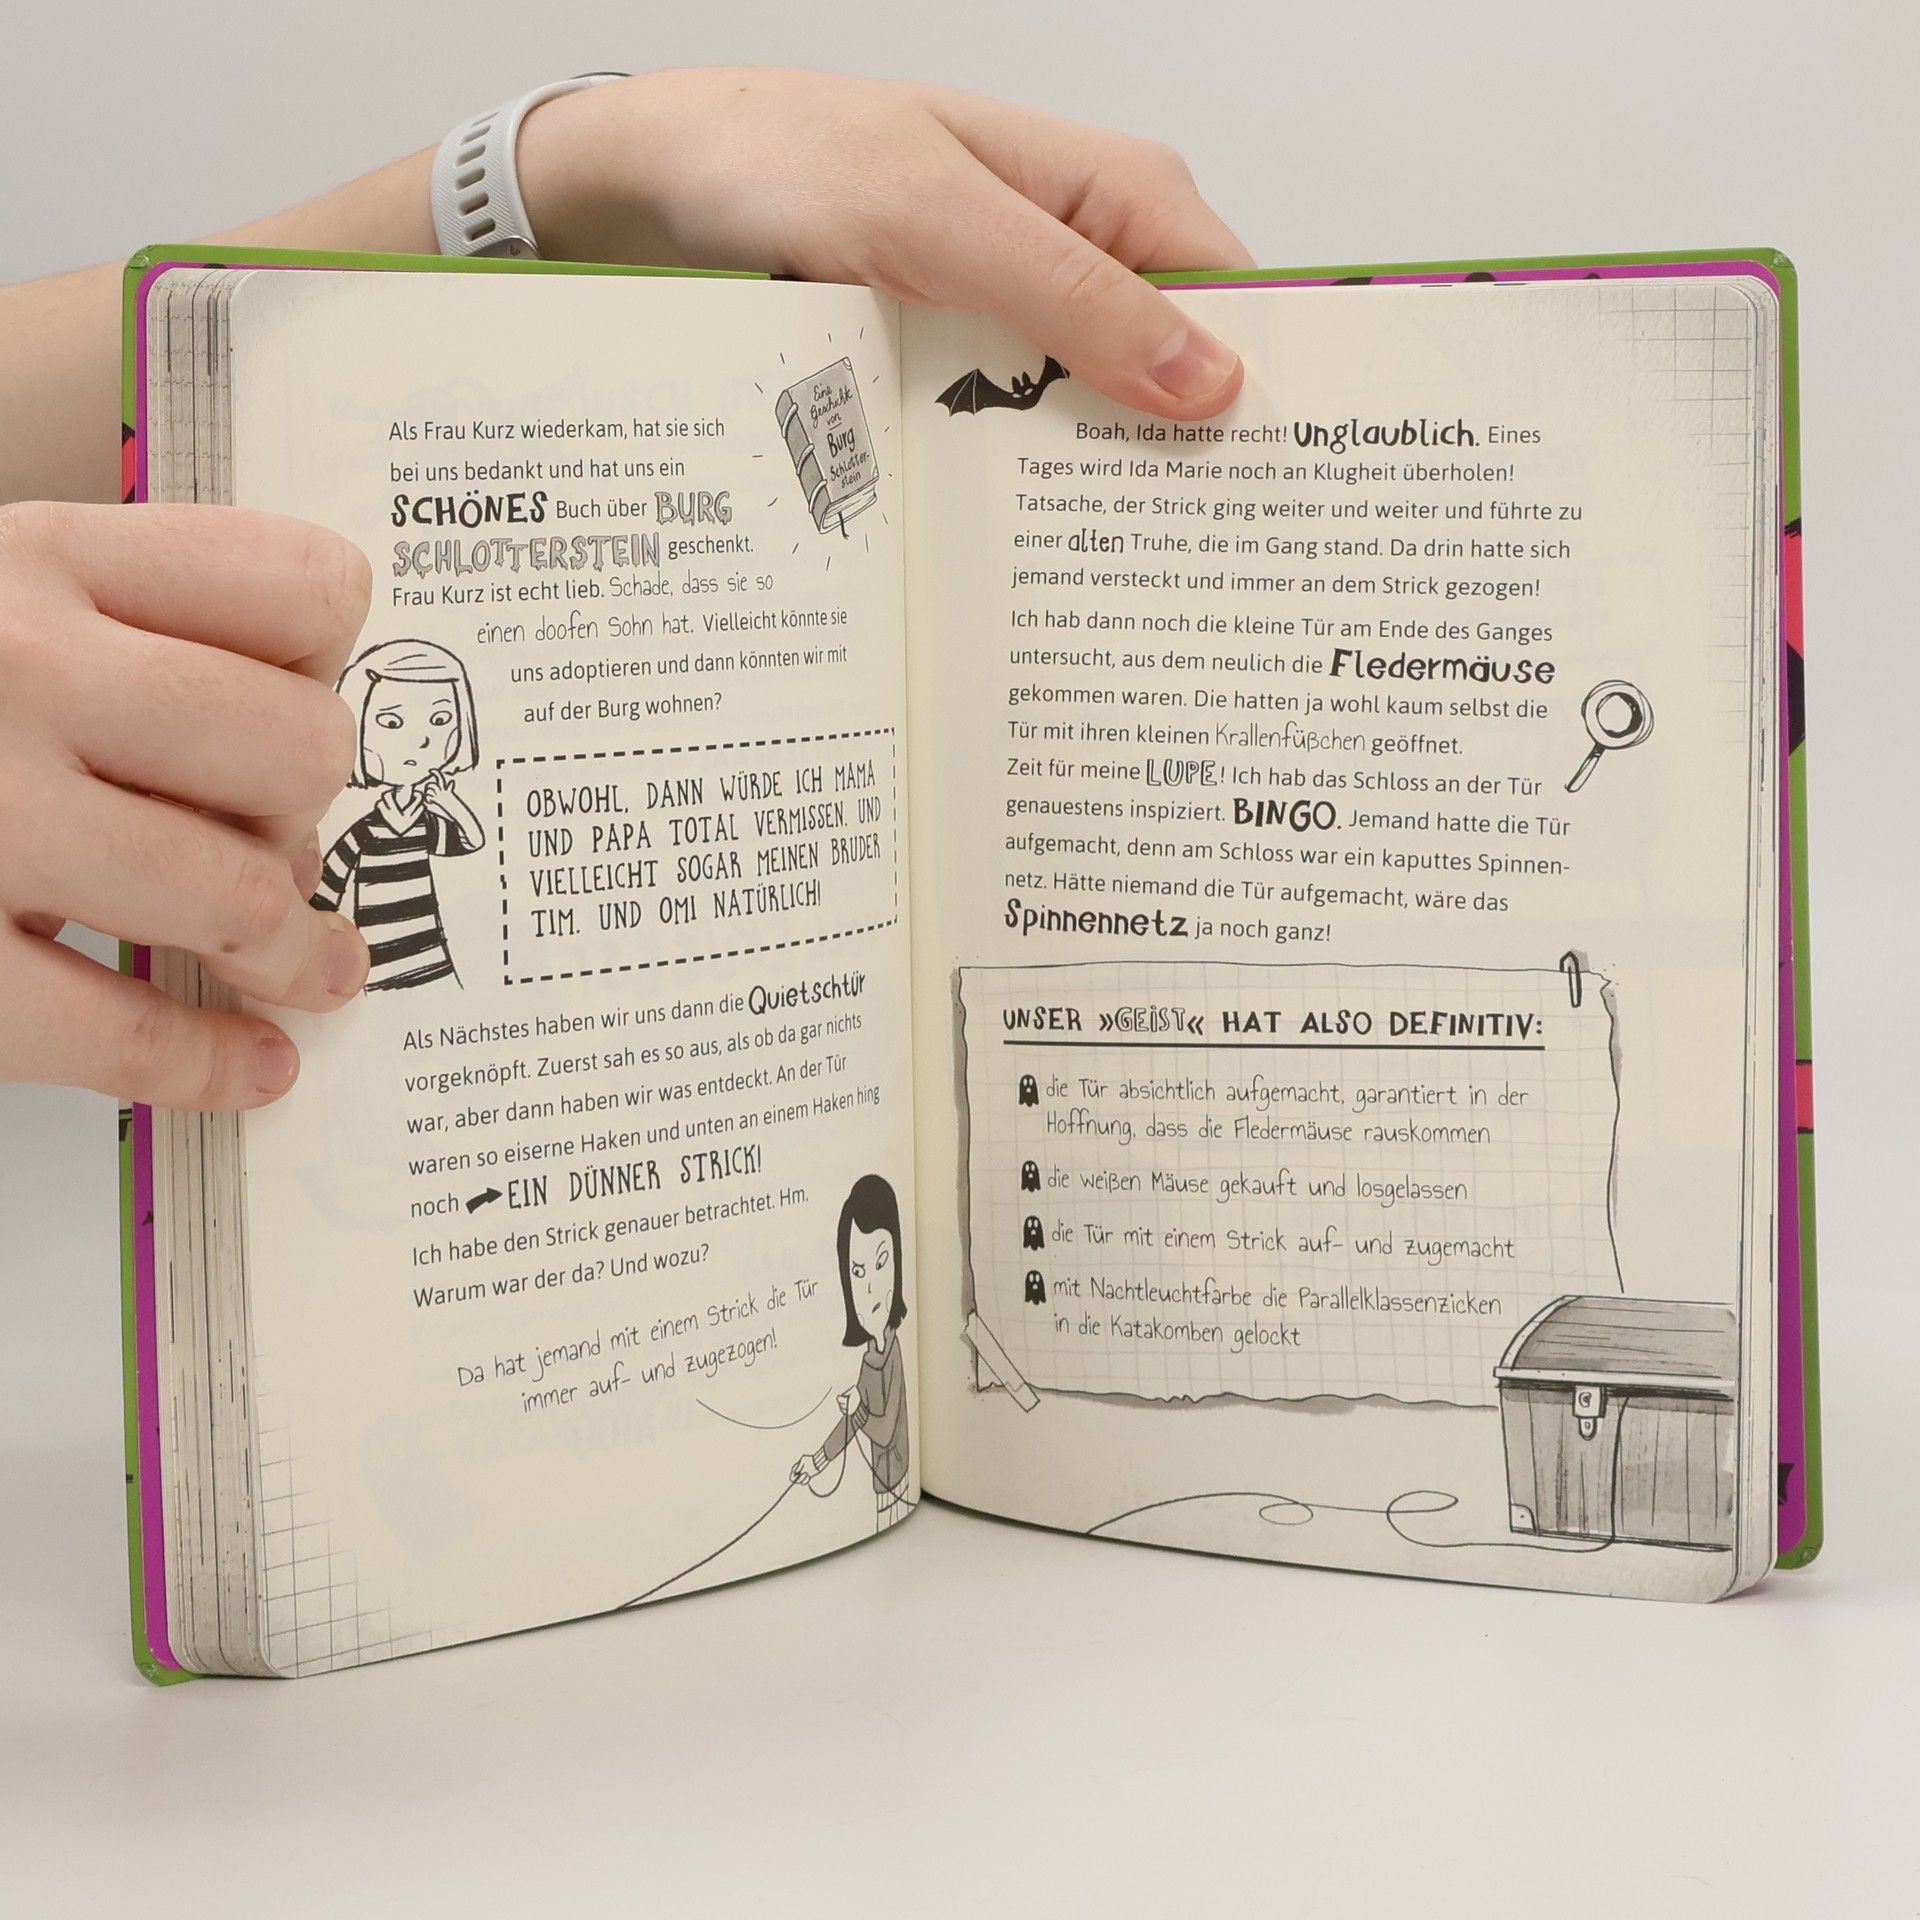 Als Frau Kurz wiederkam, hat sie sich
bei uns bedankt und hat uns ein
SCHÖNES Buch über BURG
SCHLOTTERSTEIN geschenkt.
Frau Kurz ist echt lieb. Schade, dass sie so
einen doofen Sohn hat. Vielleicht könnte sie
uns adoptieren und dann könnten wir mit
auf der Burg wohnen?
Eine
Geschichte
von
Burg
Schlotter-
stein
OBWOHL, DANN WÜRDE ICH MAMA
UND PAPA TOTAL VERMISSEN. UND
VIELLEICHT SOGAR MEINEN BRUDER
TIM. UND OMI NATÜRLICH!
Als Nächstes haben wir uns dann die Quietschtür
vorgeknöpft. Zuerst sah es so aus, als ob da gar nichts
war, aber dann haben wir was entdeckt. An der Tür
waren so eiserne Haken und unten an einem Haken hing
noch EIN DÜNNER STRICK!
Ich habe den Strick genauer betrachtet. Hm.
Warum war der da? Und wozu?
Da hat jemand mit einem Strick die Tür
immer auf- und zugezogen!
Boah, Ida hatte recht! Unglaublich. Eines
Tages wird Ida Marie noch an Klugheit überholen!
Tatsache, der Strick ging weiter und weiter und führte zu
einer alten Truhe, die im Gang stand. Da drin hatte sich
jemand versteckt und immer an dem Strick gezogen!
Ich hab dann noch die kleine Tür am Ende des Ganges
untersucht, aus dem neulich die Fledermäuse
gekommen waren. Die hatten ja wohl kaum selbst die
Tür mit ihren kleinen Krallenfüßchen geöffnet.
Zeit für meine LUPE! Ich hab das Schloss an der Tür
genauestens inspiziert. BINGO. Jemand hatte die Tür
aufgemacht, denn am Schloss war ein kaputtes Spinnen-
netz. Hätte niemand die Tür aufgemacht, wäre das
Spinnennetz ja noch ganz!
UNSER »GEIST« HAT ALSO DEFINITIV:
die Tür absichtlich aufgemacht, garantiert in der
Hoffnung, dass die Fledermäuse rauskommen
die weißen Mäuse gekauft und losgelassen
die Tür mit einem Strick auf- und zugemacht
mit Nachtleuchtfarbe die Parallelklassenzicken
in die Katakomben gelockt